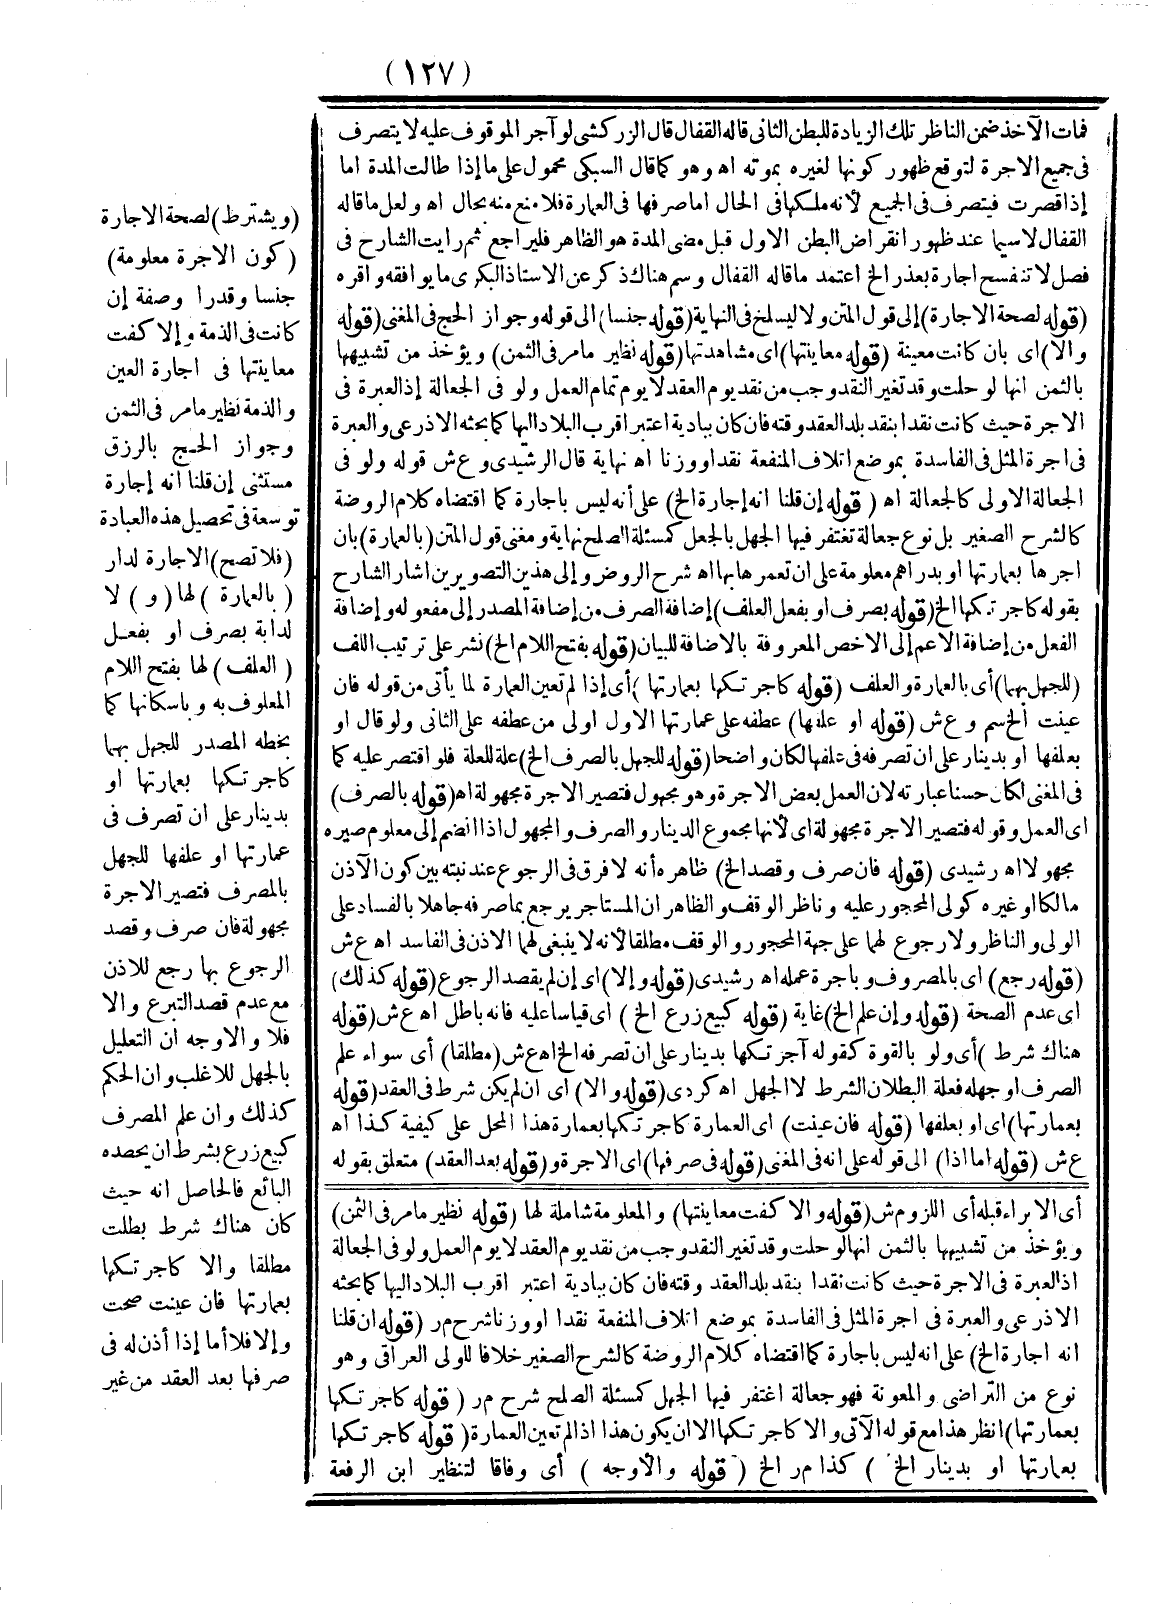 (١٢٧)
فمات الآخذ ضمن الناظر تلك الزيادة للبطن الثانى قاله القفال قال الزركشى لو آجر الموقوف عليه لا يتصرف
فى جميع الاجرة لتوقع ظهور كونها لغيره بموته اه وهو كما قال السبكى محمول على ما إذا طالت المدة اما
إذا قصرت فيتصرف فى الجميع لأنه ملكها فى الحال اما صرفها فى العمارة فلا منع منه بحال اه ولعل ما قاله
القفال لا سيما عند ظهور انقراض البطن الاول قبل مضى المدة هو الظاهر فليراجع ثم رايت الشارح فى
فصل لا تنفسح اجارة بعذر الخ اعتمد ما قاله القفال وسم هناك ذكر عن الاستاذ البكرى ما يوافقه واقره
(قوله لصحة الاجارة) إلى قول المتن ولا ليسلخ فى النهاية (قوله جنسا) الى قوله وجواز الحج فى المغنى (قوله
والا) اى بان كانت معينة (قوله معاينتها) اى مشاهدتها (قوله نظير ما مر فى الثمن) ويؤخذ من تشبيهها
بالثمن انها لو حلت وقد تغير النقد وجب من نقد يوم العقد لا يوم تمام العمل ولو فى الجعالة إذ العبرة فى
الاجرة حيث كانت نقدا بنقد بلد العقد وقته فان كان ببادية اعتبر اقرب البلاد اليها كما بحثه الاذرعى والعبرة
فى اجرة المثل فى الفاسدة بموضع اتلاف المنفعة نقدا ووزنا اه نهاية قال الرشيدى و ع ش قوله ولو فى
الجعالة الاولى كالجعالة اه (قوله إن قلنا انه إجارة الخ) على أنه ليس باجارة كما اقتضاه كلام الروضة
كالشرح الصغير بل نوع جعالة تغتفر فيها الجهل بالجعل كمسئلة الصلح نهاية ومغنى قول المتن (بالعمارة) بان
اجرها بعمارتها او بدراهم معلومة على ان تعمرها بها اه شرح الروض وإلى هذين التصويرين اشار الشارح
بقوله كاجرتكها الخ (قوله بصرف او بفعل العلف) إضافة الصرف من إضافة المصدر إلى مفعوله وإضافة
الفعل من إضافة الاعم إلى الاخص المعروفة بالاضافة للبيان (قوله بفتح اللام الخ) نشر على ترتيب اللف
(للجهل بهما) أى بالعمارة والعلف (قوله كاجرتكها بعمارتها) أى إذا لم تعين العمارة لما يأتى من قوله فان
عينت الخ سم و ع ش (قوله او علفها) عطفه على عمارتها الاول اولى من عطفه على الثانى ولو قال او
بعلفها او بدينار على ان تصرفه فى علفها لكان واضحا (قوله للجهل بالصرف الخ) علة للعلة فلو اقتصر عليه كما
فى المغنى لكان حسنا عبارته لان العمل بعض الاجرة وهو مجهول فتصير الاجرة مجهولة اه (قوله بالصرف)
اى العمل وقوله فتصير الاجرة مجهولة اى لأنها مجموع الدينار والصرف والمجهول اذا انضم إلى معلوم صيره
مجهولا اه رشيدى (قوله فان صرف وقصد الخ) ظاهره أنه لا فرق فى الرجوع عند نيته بين كون الآذن
مالكا او غيره كولى المحجور عليه وناظر الوقف والظاهر ان المستاجر يرجع بما صرفه جاهلا بالفساد على
الولى والناظر ولا رجوع لهما على جهة المحجور والوقف مطلقا لأنه لا ينبغى لهما الاذن فى الفاسد اه ع ش
(قوله رجع) اى بالمصروف وباجرة عمله اه رشيدى (قوله وإلا) اى إن لم يقصد الرجوع (قوله كذلك)
اى عدم الصحة (قوله وإن علم الخ) غاية (قوله كبيع زرع الخ) اى قياسا عليه فانه باطل اه ع ش (قوله
هناك شرط) أى ولو بالقوة كقوله آجرتكها بدينار على ان تصرفه الخ اه ع ش (مطلقا) أى سواء علم
الصرف او جهله فعلة البطلان الشرط لا الجهل اه كردى (قوله والا) اى ان لم يكن شرط فى العقد (قوله
بعمارتها) اى او بعلفها (قوله فان عينت) اى العمارة كاجرتكها بعمارة هذا المحل على كيفية كذا اه
ع ش (قوله اما اذا) الى قوله على انه فى المغنى (قوله فى صرفها) اى الاجرة و(قوله بعد العقد) متعلق بقوله
أى الابراء قبله أى اللزوم ش (قوله والا كفت معاينتها) والمعلومة شاملة لها (قوله نظير ما مر فى الثمن)
ويؤخذ من تشبيهها بالثمن انها لو حلت وقد تغير النقد وجب من نقد يوم العقد لا يوم العمل ولو فى الجعالة
اذ العبرة فى الاجرة حيث كانت نقدا بنقد بلد العقد وقته فان كان ببادية اعتبر اقرب البلاد اليها كما بحثه
الاذرعى والعبرة فى اجرة المثل فى الفاسدة بموضع اتلاف المنفعة نقدا ووزنا شرح م ر (قوله ان قلنا
انه اجارة الخ) على انه ليس باجارة كما اقتضاه كلام الروضة كالشرح الصغير خلافا للولى العراقى وهو
نوع من التراضى والمعونة فهو جعالة اغتفر فيها الجهل كمسئلة الصلح شرح م ر (قوله كاجرتكها
بعمارتها) انظر هذا مع قوله الآتى والا كاجرتكها الا ان يكون هذا اذا لم تعين العمارة (قوله كاجرتكها
بعمارتها او بدينار الخ) كذا م ر الخ (قوله والأوجه) أى وفاقا لتنظير ابن الرفعة
(ويشترط) لصحة الاجارة
(كون الاجرة معلومة)
جنسا وقدرا وصفة إن
كانت فى الذمة وإلا كفت
معاينتها فى اجارة العين
والذمة نظير ما مر فى الثمن
وجواز الحج بالرزق
مستثنى إن قلنا انه إجارة
توسعة فى تحصيل هذه العبادة
(فلا تصح) الاجارة لدار
(بالعمارة) لها (و) لا
لدابة بصرف او بفعل
(العلف) لها بفتح اللام
المعلوف به وباسكانها كما
بخطه المصدر للجهل بهما
كاجرتكها بعمارتها او
بدينار على ان تصرف فى
عمارتها او علفها للجهل
بالمصرف فتصير الاجرة
مجهولة فان صرف وقصد
الرجوع بها رجع للاذن
مع عدم قصد التبرع والا
فلا والاوجه ان التعليل
بالجهل للاغلب وان الحكم
كذلك وان علم المصرف
كبيع زرع بشرط ان يحصده
البائع فالحاصل انه حيث
كان هناك شرط بطلت
مطلقا والا كاجرتكها
بعمارتها فان عينت صحت
وإلا فلا أما إذا أذن له فى
صرفها بعد العقد من غير